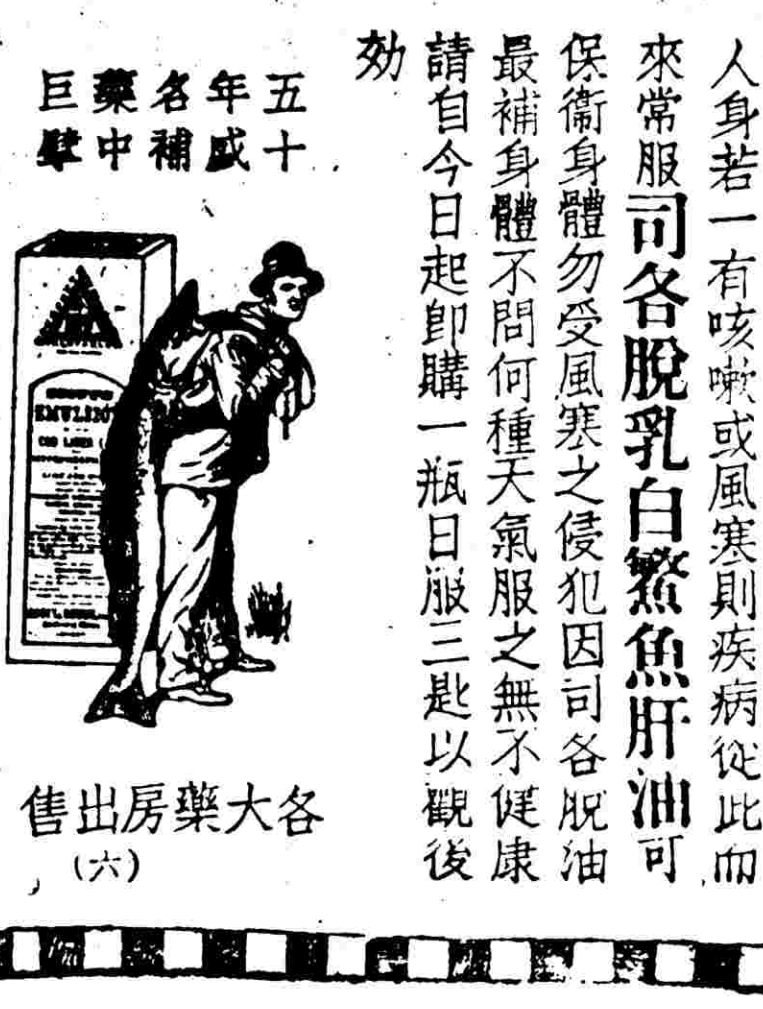 人身若一有咳嗽或風寒則疾病從此而
來常服司各脫乳白鰵魚肝油可
保衞身體勿受風寒之侵犯因司各脫油
最補身體不問何種天氣服之無不健康
請自今日起卽購一瓶日服三匙以觀後
効
五十
年盛
名補
藥中
巨擘
EMULSIO
各大藥房出售
(六)